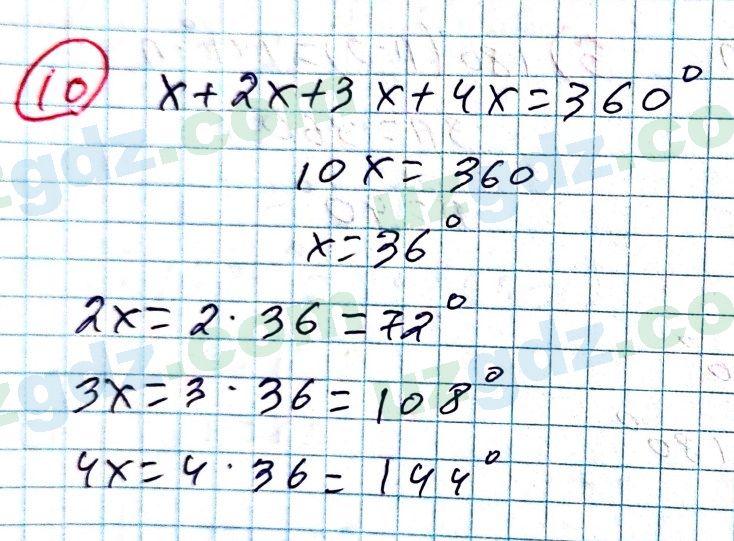 10 x+2x+3x+4x=360°
10x=360
x=36°
2x=2·36=72°
3x=3·36=108°
4x=4·36=144°
uzgdz.com
uzgdz.com
uzgdz.com
uzgdz.com